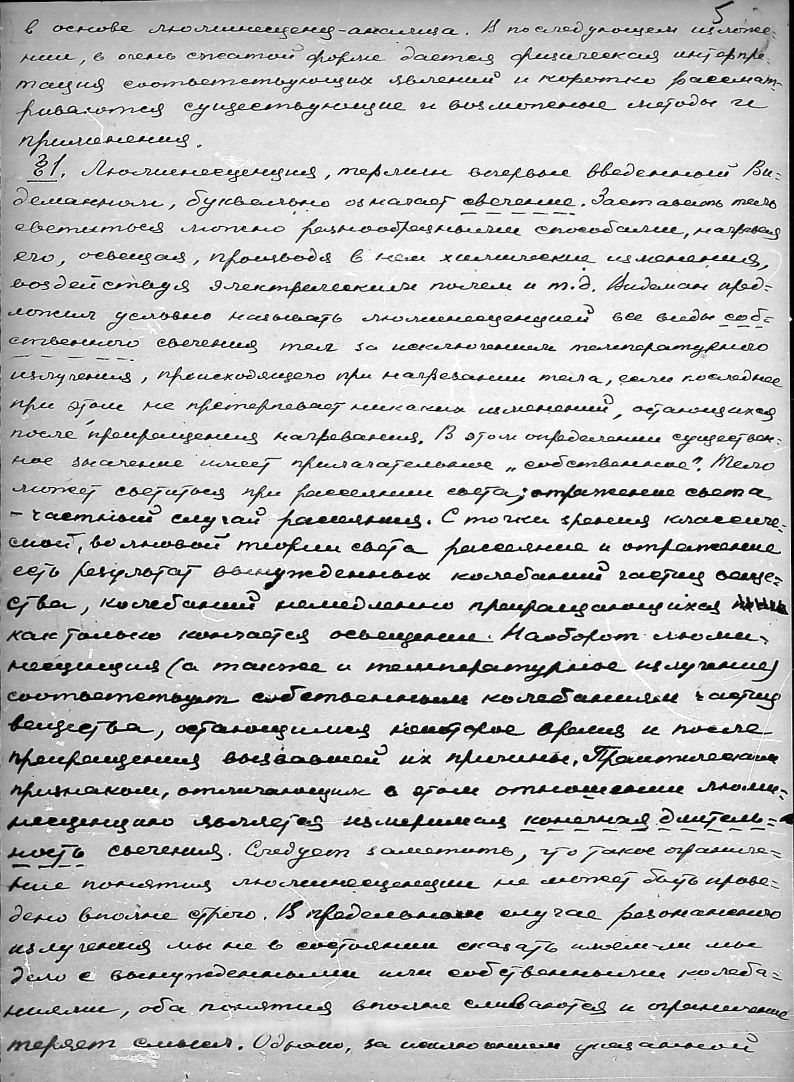 5
в основе люминесценц-анализа. В последующем изложе-
нии, в очень сжатой форме дается физическая интерпре-
тация соответствующих явлений и коротко рассмат-
риваются существующие и возможные методы и
применения.
§1. Люминесценция, термин впервые введенный Ви-
деманном, буквально означает свечение. Заставить тело
светиться можно разнообразными способами, нагревая
его, освещая, производя в нем химические изменения,
воздействуя электрическим полем и т.д. Видеман пред-
ложил условно называть люминесценцией все виды соб-
ственного свечения тел за исключением температурного
излучения, происходящего при нагревании тела, если последнее
при этом не претерпевает никаких изменений, остающихся
после прекращения нагревания. В этом определении существен-
ное значение имеет прилагательное „собственное". Тело
может светиться при рассеянии света; отражение света
– частный случай рассеяния. С точки зрения классиче-
ской, волновой теории света рассеяние и отражение
есть результат вынужденных колебаний частиц веще-
ства, колебаний немедленно прекращающихся
как только кончается освещение. Наоборот люми-
несценция (а также и температурное излучение)
соответствует собственным колебаниям частиц
вещества, остающимся некоторое время и после
прекращения вызвавшей их причины. Практическим
признаком, отличающим в этом отношении люми-
несценцию является измеримая конечная длитель-
ность свечения. Следует заметить, что такое ограниче-
ние понятия люминесценции не может быть прове-
дено вполне строго. В предельном случае резонансного
излучения мы не в состоянии сказать имеем-ли мы
дело с вынужденными или собственными колеба-
ниями, оба понятия вполне сливаются и ограничение
теряет смысл. Однако, за исключением указанной